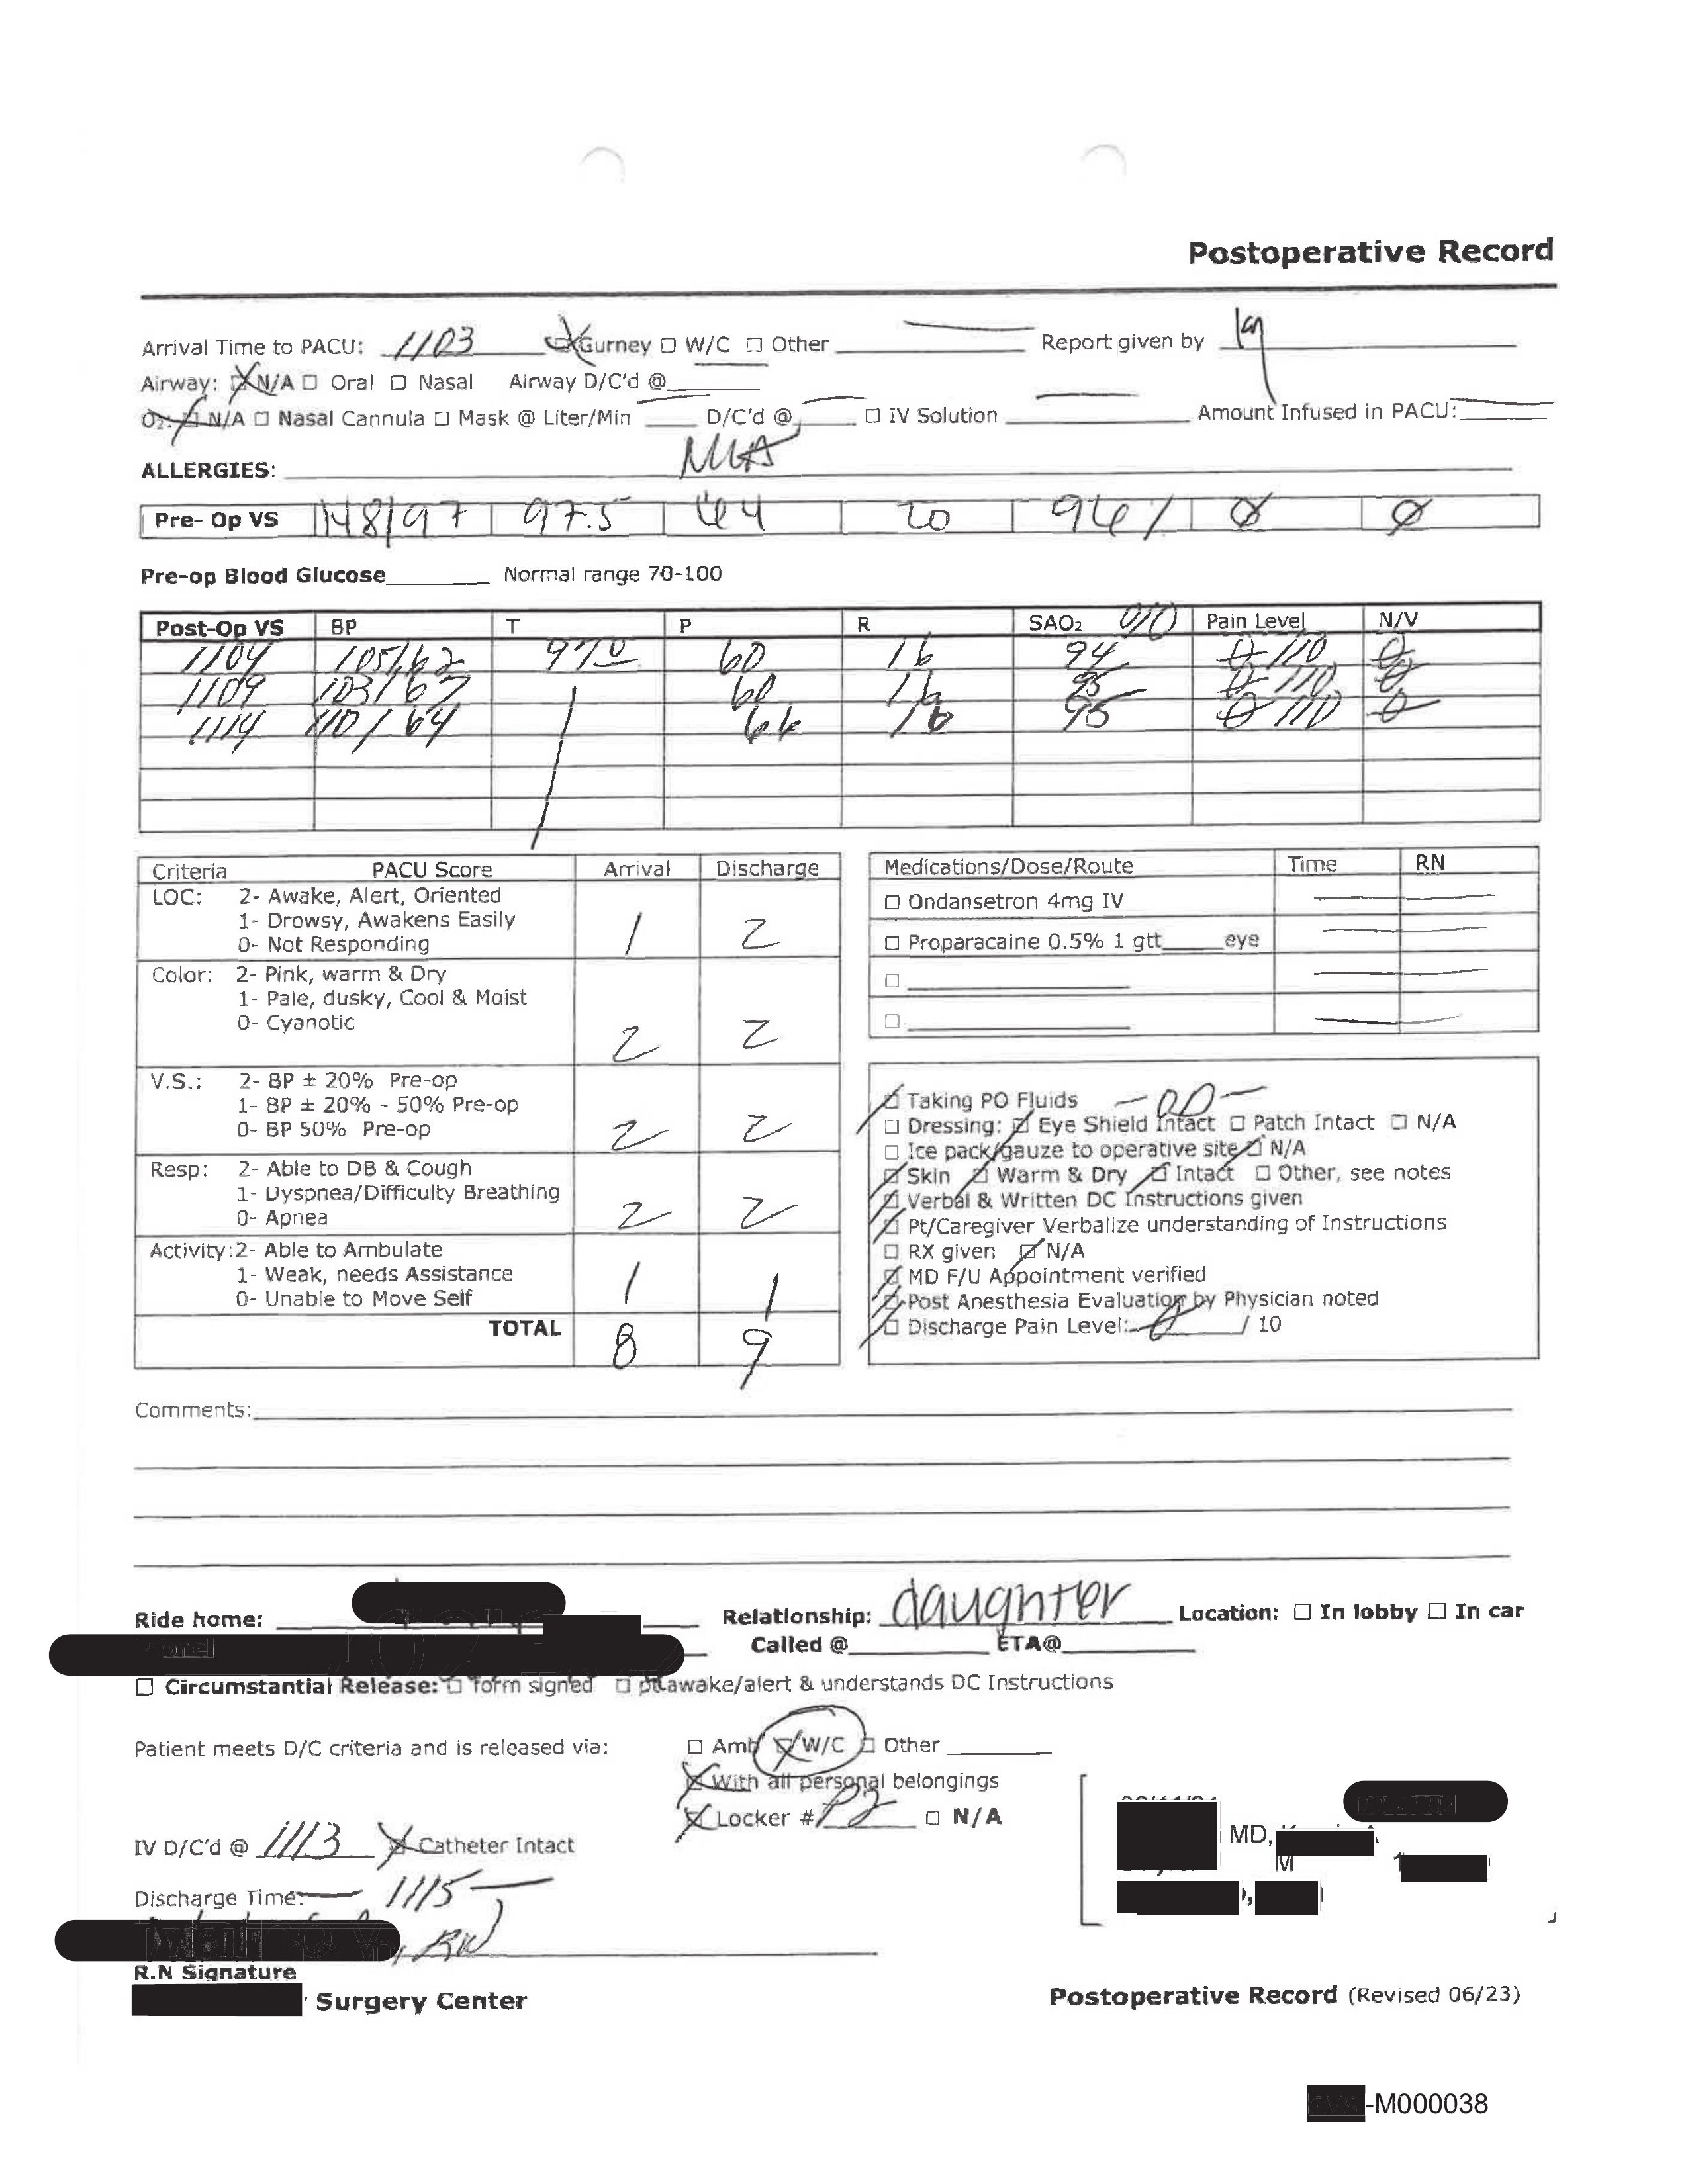 Postoperative Record
Arrival Time to PACU: 1103 ☒ Gurney ☐ W/C ☐ Other Report given by
Airway: ☒ N/A ☐ Oral ☐ Nasal Airway D/C'd @
O2: ☒ N/A ☐ Nasal Cannula ☐ Mask @ Liter/Min D/C'd @ ☐ IV Solution Amount Infused in PACU:
ALLERGIES:
Pre- Op VS 148/97 97.5 20 Ø Ø
Pre-op Blood Glucose Normal range 70-100
Post-Op VS BP T P R SAO2 % Pain Level N/V
1104 105/62 97.0 60 16 94 0/10 0
1109 103/67 60 16 95 0/10 0
1114 110/64 66 16 95 0/10 0
Criteria PACU Score Arrival Discharge
LOC: 2- Awake, Alert, Oriented
1- Drowsy, Awakens Easily 1 2
0- Not Responding
Color: 2- Pink, warm & Dry
1- Pale, dusky, Cool & Moist
0- Cyanotic 2 2
V.S.: 2- BP ± 20% Pre-op
1- BP ± 20% - 50% Pre-op
0- BP 50% Pre-op 2 2
Resp: 2- Able to DB & Cough
1- Dyspnea/Difficulty Breathing
0- Apnea 2 2
Activity: 2- Able to Ambulate
1- Weak, needs Assistance 1 1
0- Unable to Move Self
TOTAL 8 9
Medications/Dose/Route Time RN
☐ Ondansetron 4mg IV
☐ Proparacaine 0.5% 1 gtt eye
☐
☐
☑ Taking PO Fluids - OD -
☐ Dressing: ☑ Eye Shield Intact ☐ Patch Intact ☐ N/A
☐ Ice pack/gauze to operative site ☑ N/A
☑ Skin ☑ Warm & Dry ☑ Intact ☐ Other, see notes
☑ Verbal & Written DC Instructions given
☑ Pt/Caregiver Verbalize understanding of Instructions
☐ RX given ☑ N/A
☑ MD F/U Appointment verified
☑ Post Anesthesia Evaluation by Physician noted
☑ Discharge Pain Level: 0 / 10
Comments:
Ride home: Relationship: daughter Location: ☐ In lobby ☐ In car
Called @ ETA@
☐ Circumstantial Release: ☐ form signed ☐ pt awake/alert & understands DC Instructions
Patient meets D/C criteria and is released via: ☐ Amb ☒ W/C ☐ Other
☒ With all personal belongings
☒ Locker # P2 ☐ N/A
IV D/C'd @ 1113 ☒ Catheter Intact
Discharge Time: 1115
MD,
M
, RN
R.N Signature
Surgery Center
Postoperative Record (Revised 06/23)
-M000038